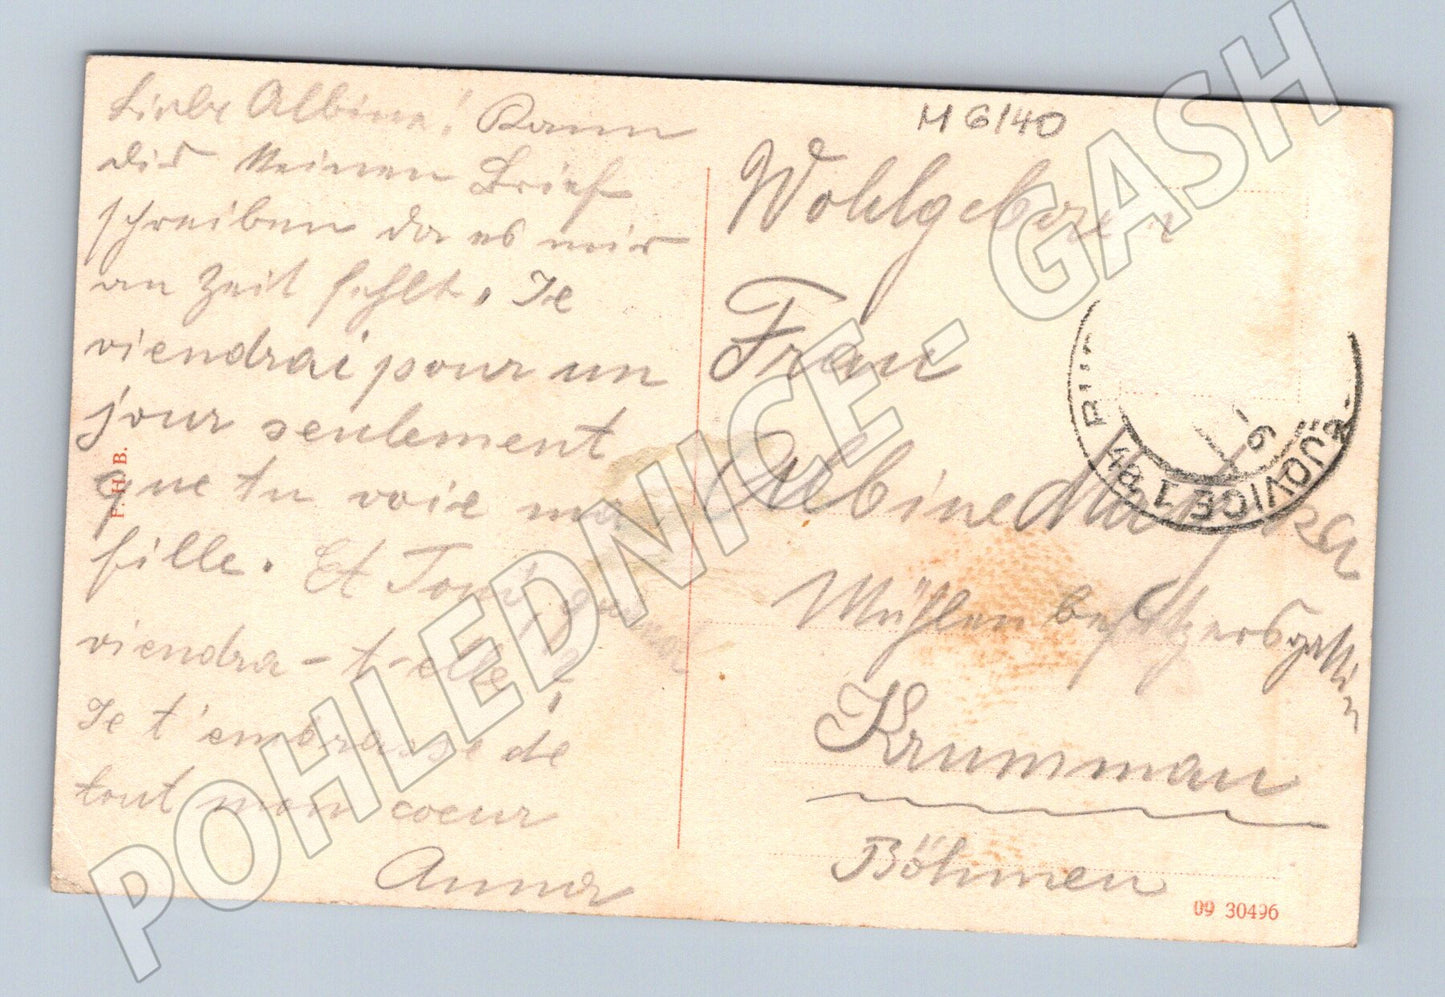 Liebe Albine! Kann
dir keinen Brief
schreiben da es mir
an Zeit fehlt. Je
viendrai pour un
jour seulement
que tu voie ma
fille. Et Toni, quand
viendra-t-elle?
Je t'embrasse de
tout mon coeur
Anna
F. H. B.
M 6/40
Wohlgeboren
Frau
Albine
Mühlenbesitzersgattin
Krummau
Böhmen
09 30496
JOVICE 1
POHLEDNICE - GASH